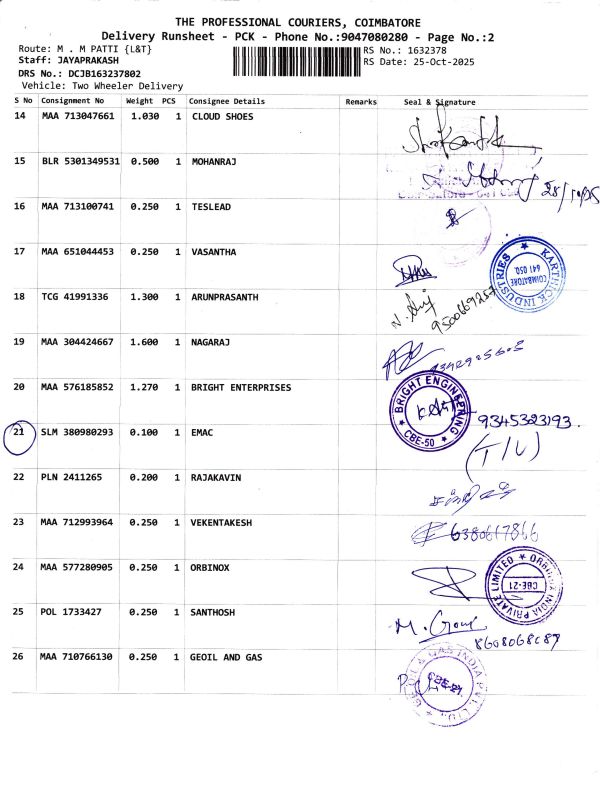 THE PROFESSIONAL COURIERS, COIMBATORE
Delivery Runsheet - PCK - Phone No.:9047080280 - Page No.:2
Route: M . M PATTI {L&T} RS No.: 1632378
Staff: JAYAPRAKASH RS Date: 25-Oct-2025
DRS No.: DCJB163237802
Vehicle: Two Wheeler Delivery
S No Consignment No Weight PCS Consignee Details Remarks Seal & Signature
14 MAA 713047661 1.030 1 CLOUD SHOES
15 BLR 5301349531 0.500 1 MOHANRAJ
16 MAA 713100741 0.250 1 TESLEAD
17 MAA 651044453 0.250 1 VASANTHA
KARTHICK INDUSTRIES COIMBATORE 641 050.
18 TCG 41991336 1.300 1 ARUNPRASANTH
19 MAA 304424667 1.600 1 NAGARAJ
20 MAA 576185852 1.270 1 BRIGHT ENTERPRISES
BRIGHT ENGINEERING CBE-50
9345323193.
21 SLM 380980293 0.100 1 EMAC
22 PLN 2411265 0.200 1 RAJAKAVIN
23 MAA 712993964 0.250 1 VEKENTAKESH
6380617866
24 MAA 577280905 0.250 1 ORBINOX
ORBINOX INDIA PRIVATE LIMITED CBE-21
25 POL 1733427 0.250 1 SANTHOSH
26 MAA 710766130 0.250 1 GEOIL AND GAS
CBE-21